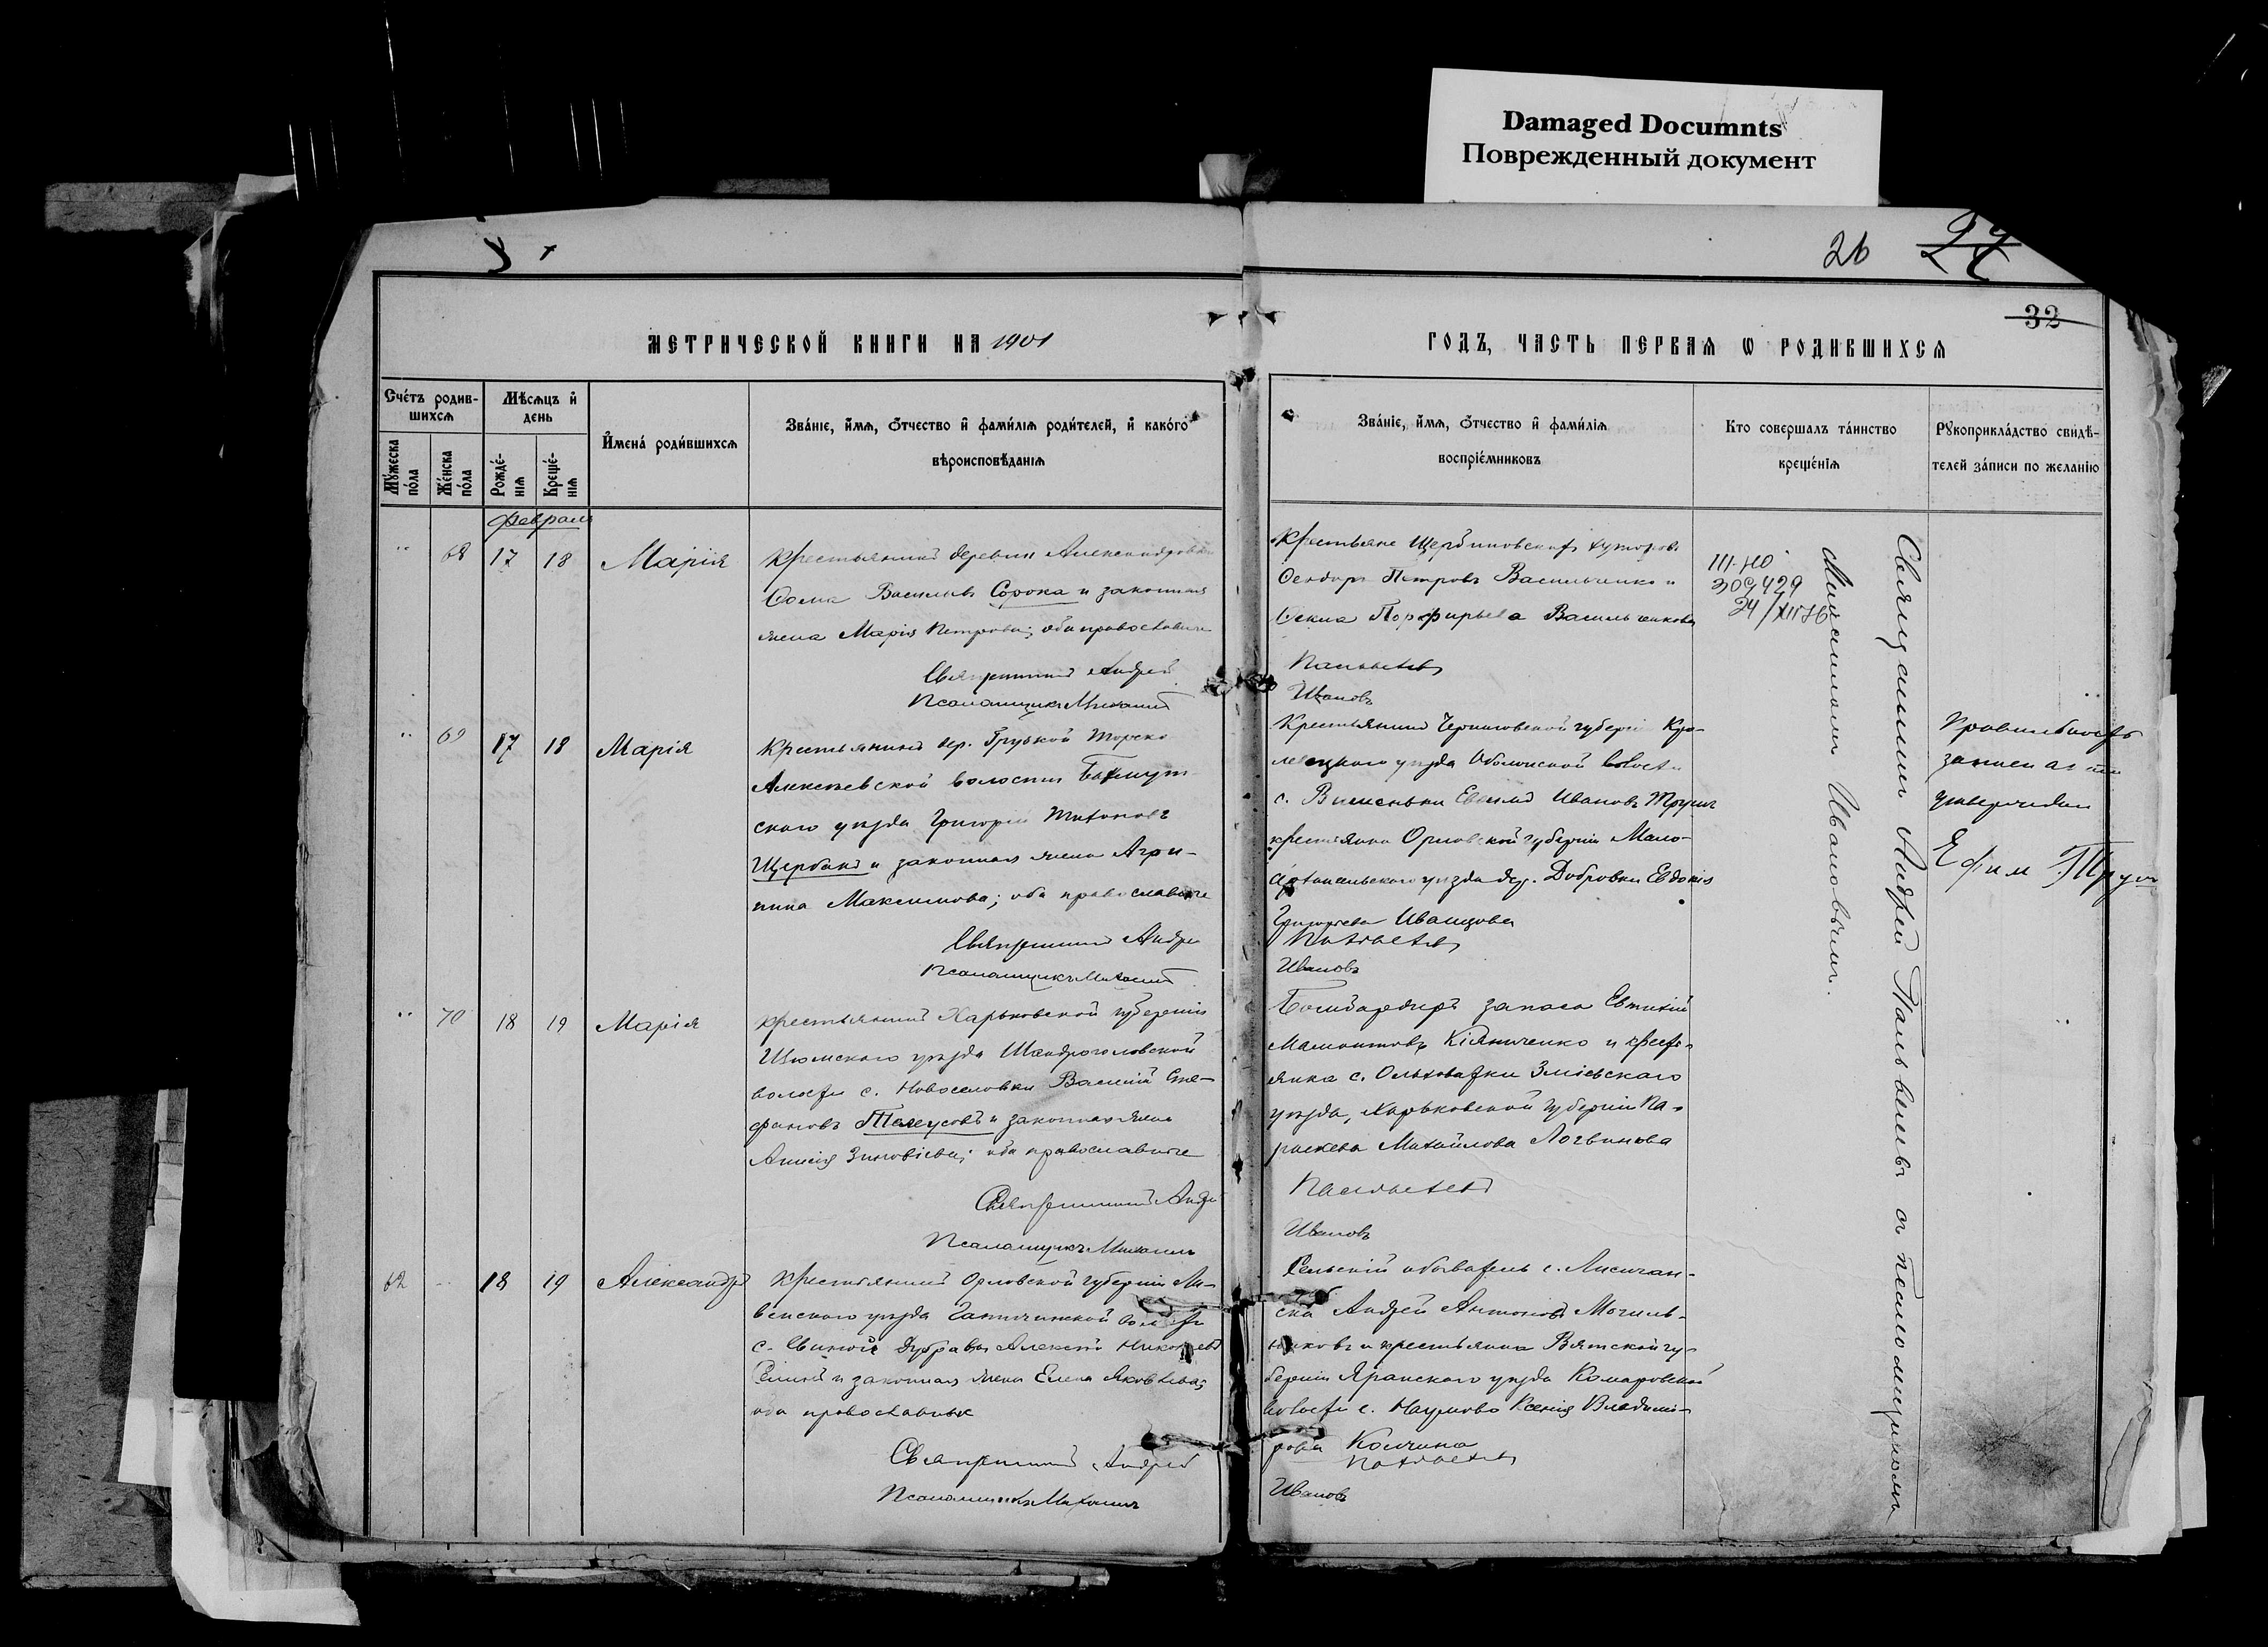 Damaged Documnts
Поврежденный документ
26 27
32
МЕТРИЧЕСКОЙ КНИГИ НА 1901
ГОДЪ, ЧАСТЬ ПЕРВАЯ Ѡ РОДИВШИХСЯ
Сче́тъ родив-
шихся
Мꙋ́жеска
по́ла
Же́нска
по́ла
Мѣ́сяцъ и҆
день
Рожде́-
нія
Креще́-
нія
И҆мена́ роди́вшихся
Зва́ніе, и҆́мя, ѻ҆́тчество и҆ фами́лія роди́телей, и҆ како́гѡ
вѣроисповѣ́данія
Зва́ніе, и҆́мя, ѻ҆́тчество и҆ фами́лія
воспріе́мниковъ
Кто соверша́лъ та́инство
креще́нія
Рꙋкоприкла́дство свидѣ́-
телей за́писи по жела́нію
Февраль
" 68 17 18 Марія
Крестьянинъ деревни Александровки
Васильевъ Сорока и законная
жена Марія Петрова; оба православные
Священникъ Андрей
Псаломщикъ Михаилъ
Крестьяне Щербиновскихъ хуторовъ
Ѳеодоръ Петровъ Васильченко и
Порфирьева Васильченкова
Пальвелевъ
Ивановъ
III-НО
309429
Священникъ Андрей Пальвелевъ съ псаломщикомъ
Михаиломъ Ивановымъ.
" 69 17 18 Марія
Крестьянинъ дер. Грузкой Торско
Алексѣевской волости Бахмут
скаго уѣзда Григорій Тихоновъ
Щербакъ и законная жена Агри-
пина Максимова; оба православные
Священникъ Андрей
Псаломщикъ Михаилъ
Крестьянинъ Черниговской губерніи Кро-
левецкаго уѣзда Оболонской волости
с. Вишеньки Ивановъ
крестьянка Орловской губерніи Мало-
архангельскаго уѣзда дер. Добровки Евдокія
Григорьева Иванцова
Пальвелевъ
Ивановъ
Правильность
записи
Ефим
" 70 18 19 Марія
Крестьянинъ Харьковской губерніи
Изюмскаго уѣзда Шандроголовской
волости с. Новоселовки Василій Сте-
фановъ и законная жена
Анисія Зиновіева; оба православные
Священникъ Андрей
Псаломщикъ Михаилъ
Бомбардиръ запаса Евтихій
Мамонтовъ и кресть-
янка с. Ольховатки Зміевскаго
уѣзда, Харьковской губерніи Па-
раскева Михайлова Логвинова
Пальвелевъ
Ивановъ
62 " 18 19 Александръ
Крестьянинъ Орловской губерніи Ли-
венскаго уѣзда волости
с. Свиной Дубравы Алексѣй Николаевъ
и законная жена Елена Яковлева;
оба православные
Священникъ Андрей
Псаломщикъ Михаилъ
Сельскій обыватель с. Лисичан-
ска Андрей Антоновъ Могиль-
никовъ и крестьянка Вятской гу-
берніи Яранскаго уѣзда Комаровской
волости с. Наумово Ксенія Владимі-
рова Колчина
Пальвелевъ
Ивановъ